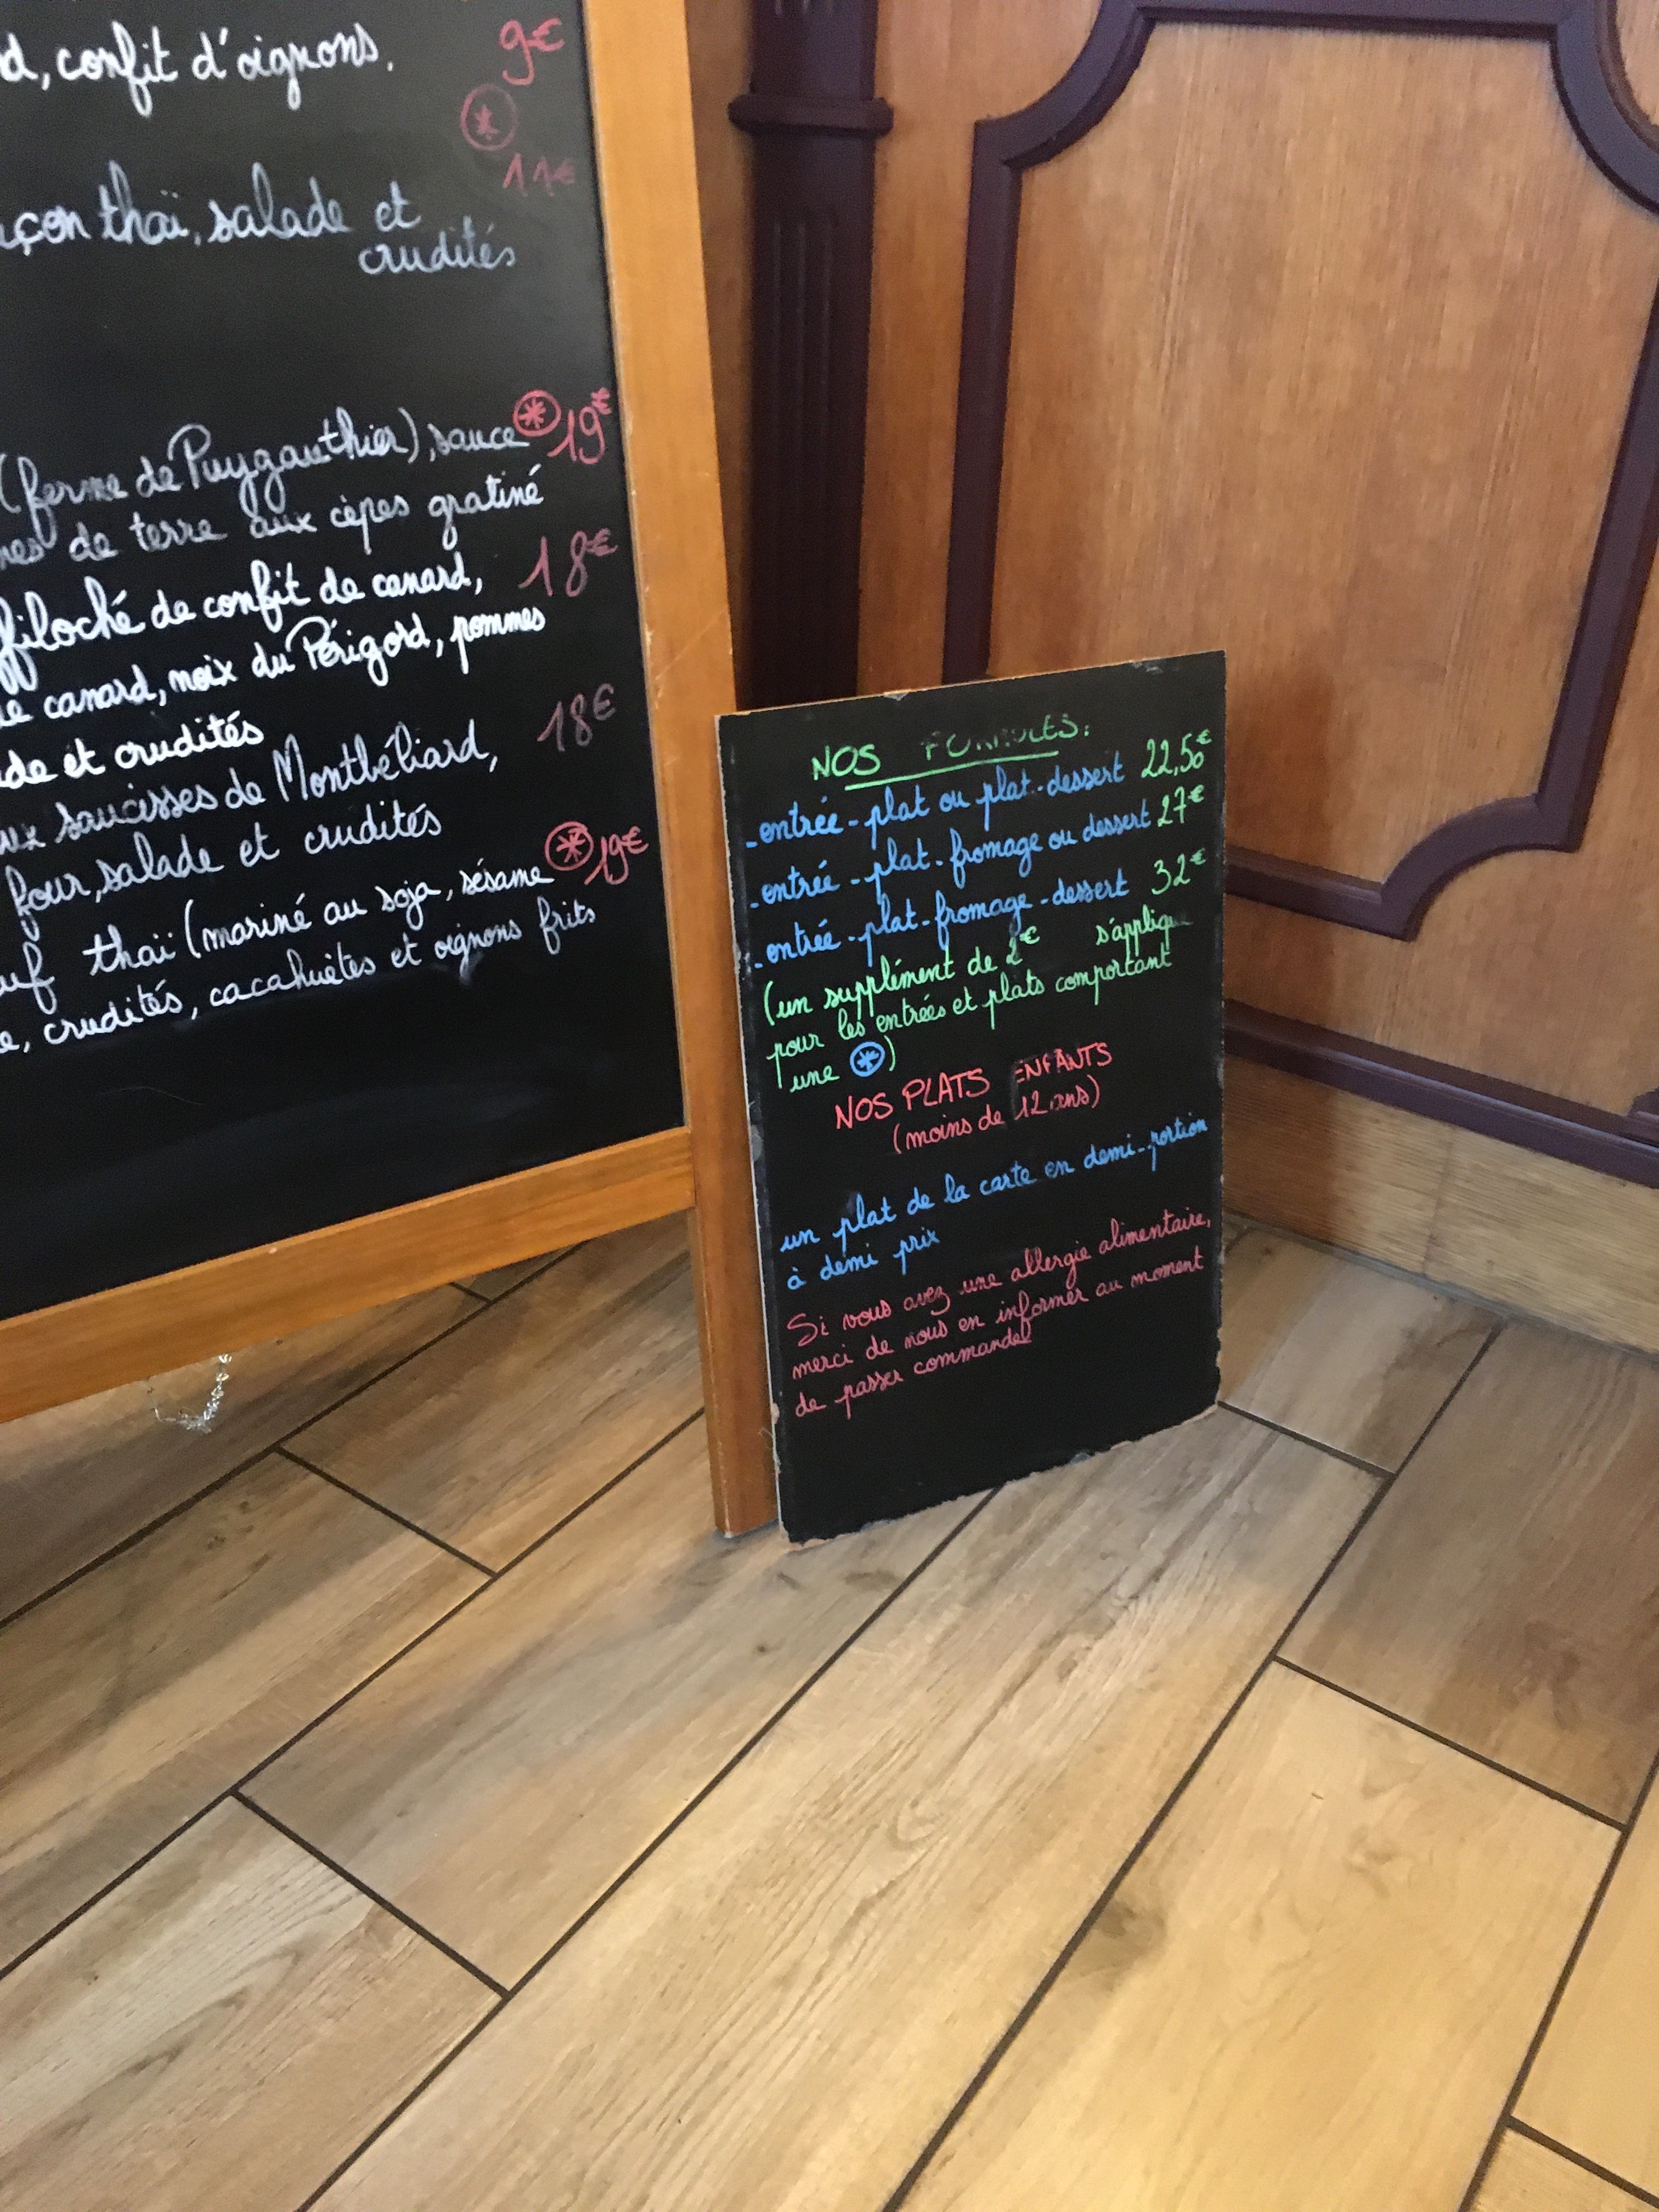 confit d'oignons. 9€
* 11€
thaï, salade et
crudités
(ferme de Puygauthier), sauce * 19€
de terre aux cèpes gratiné
de confit de canard, 18€
canard, noix du Périgord, pommes
et crudités
saucisses de Montbéliard, 18€
four, salade et crudités
thaï (mariné au soja, sésame * 19€
crudités, cacahuètes et oignons frits
NOS FORMULES:
- entrée - plat ou plat - dessert 22,50€
- entrée - plat - fromage ou dessert 27€
- entrée - plat - fromage - dessert 32€
(un supplément de 2€ s'applique
pour les entrées et plats comportant
une *)
NOS PLATS ENFANTS
(moins de 12 ans)
un plat de la carte en demi-portion
à demi prix
Si vous avez une allergie alimentaire,
merci de nous en informer au moment
de passer commande